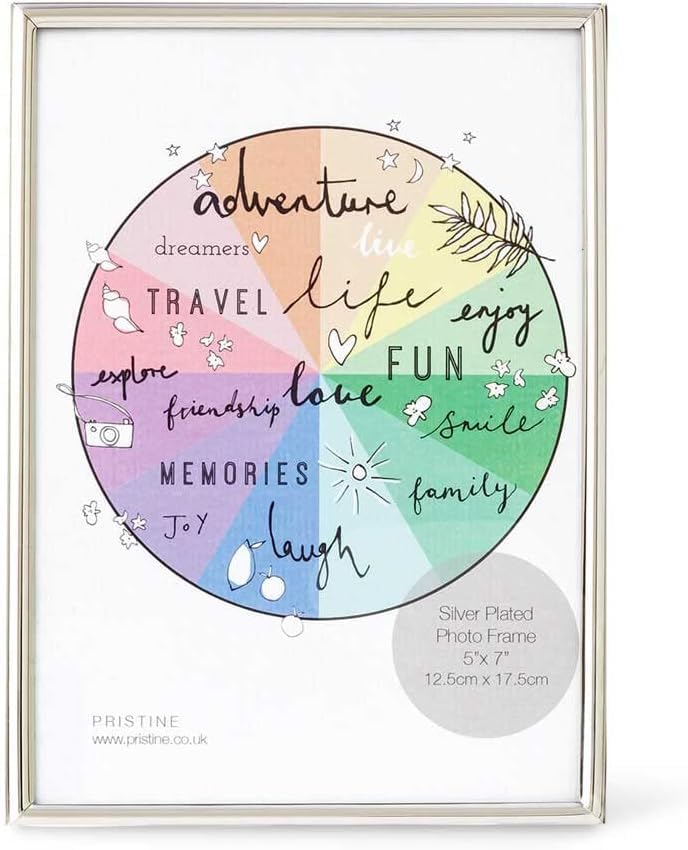 adventure
dreamers
live
TRAVEL
life
enjoy
FUN
explore
love
friendship
smile
MEMORIES
family
JOY
laugh
Silver Plated
Photo Frame
5"x 7"
12.5cm x 17.5cm
PRISTINE
www.pristine.co.uk